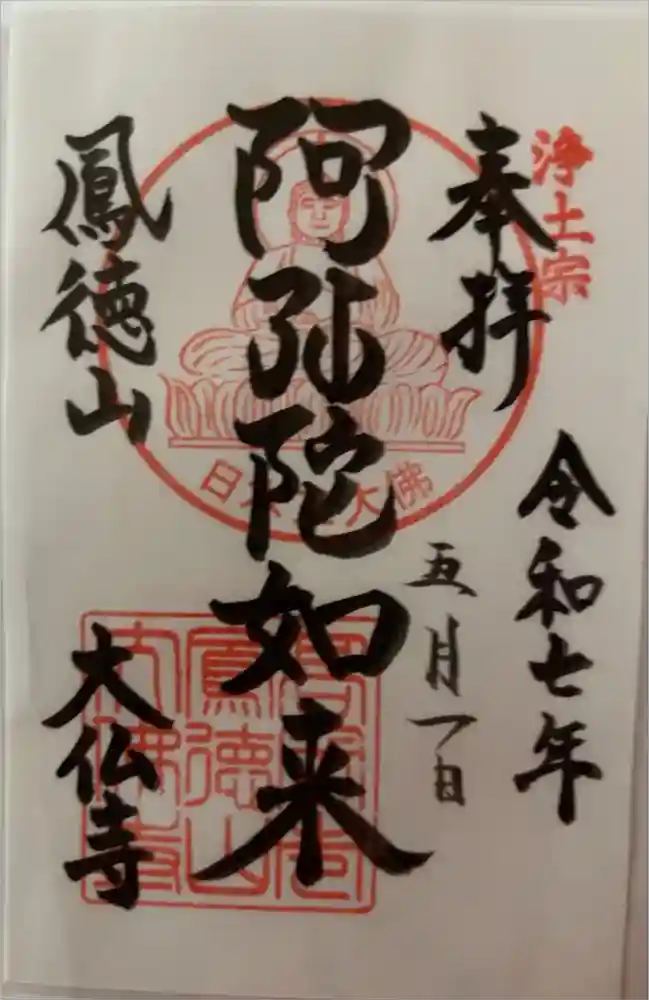 浄土宗
奉拝
令和七年
五月一日
阿弥陀如来
日本三大佛
鳳徳山
大仏寺
鳳徳山
大佛寺